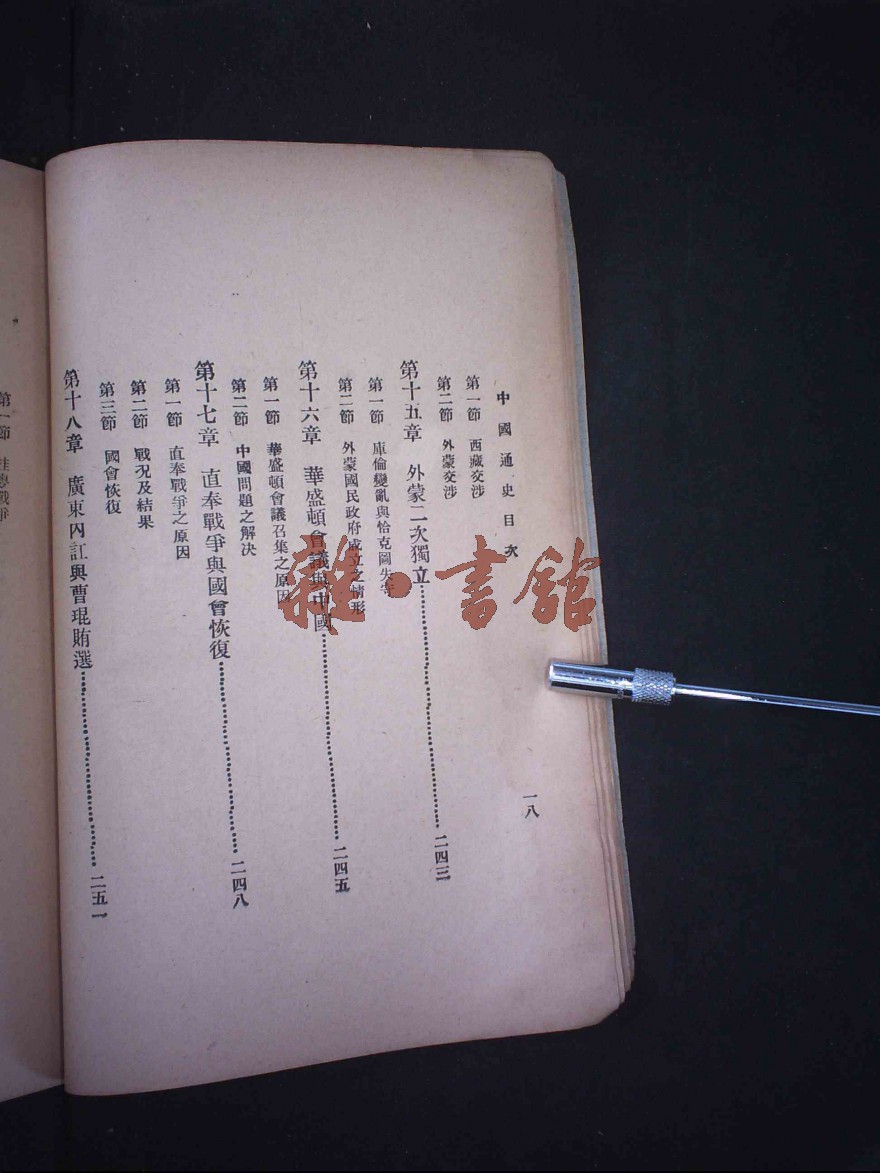 中國通史目次
一八
第一節 西藏交涉
第二節 外蒙交涉
第十五章 外蒙二次獨立……二四三
第一節 庫倫變亂與恰克圖失守
第二節 外蒙國民政府成立之情形
第十六章 華盛頓會議與中國……二四五
第一節 華盛頓會議召集之原因
第二節 中國問題之解決
第十七章 直奉戰爭與國會恢復……二四八
第一節 直奉戰爭之原因
第二節 戰況及結果
第三節 國會恢復
第十八章 廣東內訌與曹琨賄選……二五一
第一節
雜·書館